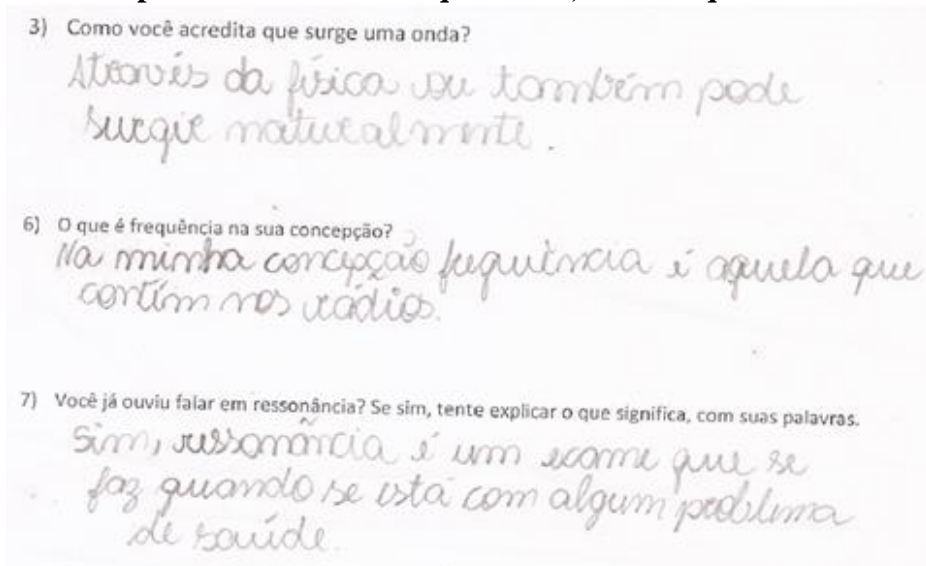 3) Como você acredita que surge uma onda?
Através da física ou também pode
surgir naturalmente.
6) O que é frequência na sua concepção?
Na minha concepção fequência é aquela que
contém nos rádios.
7) Você já ouviu falar em ressonância? Se sim, tente explicar o que significa, com suas palavras.
Sim, ressonância é um exame que se
faz quando se está com algum problema
de saúde.